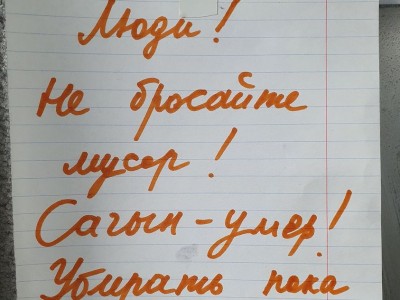 Люди!
Не бросайте
мусор!
Сагын - умер!
Убирать пока